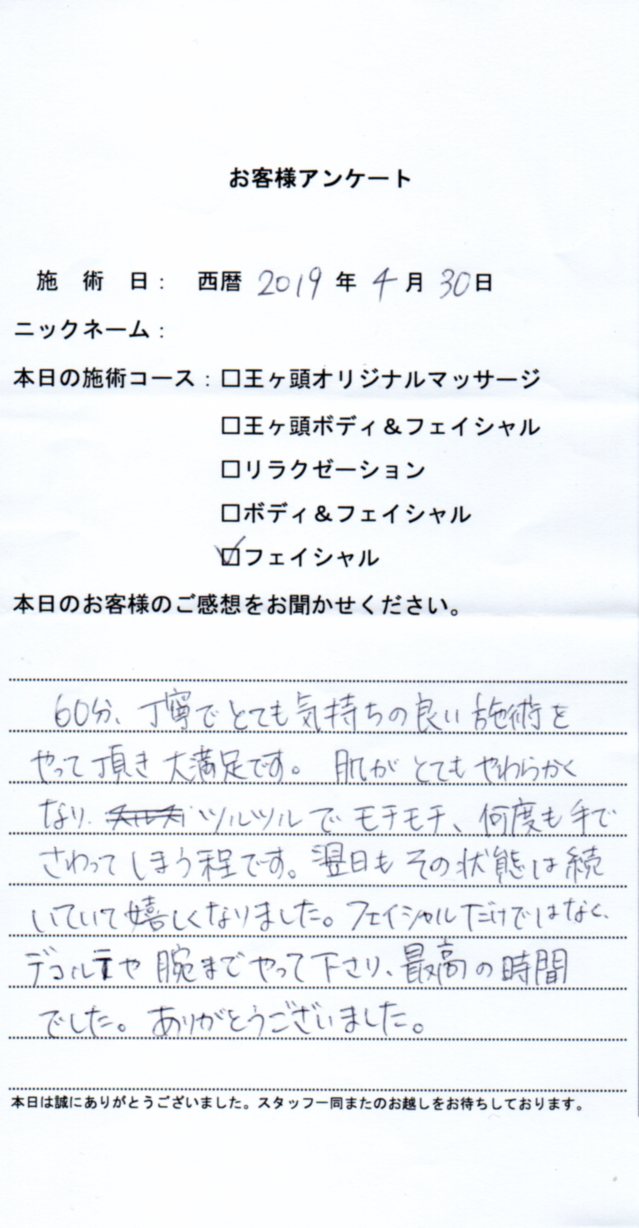 お客様アンケート
施術日： 西暦 2019 年 4 月 30 日
ニックネーム：
本日の施術コース：□王ヶ頭オリジナルマッサージ
□王ヶ頭ボディ＆フェイシャル
□リラクゼーション
□ボディ＆フェイシャル
☑フェイシャル
本日のお客様のご感想をお聞かせください。
60分、丁寧でとても気持ちの良い施術を
やって頂き大満足です。 肌がとてもやわらかく
なり、ツルツルでモチモチ、何度も手で
さわってしまう程です。翌日もその状態は続
いていて嬉しくなりました。フェイシャルだけではなく、
デコルテや腕までやって下さり、最高の時間
でした。ありがとうございました。
本日は誠にありがとうございました。スタッフ一同またのお越しをお待ちしております。